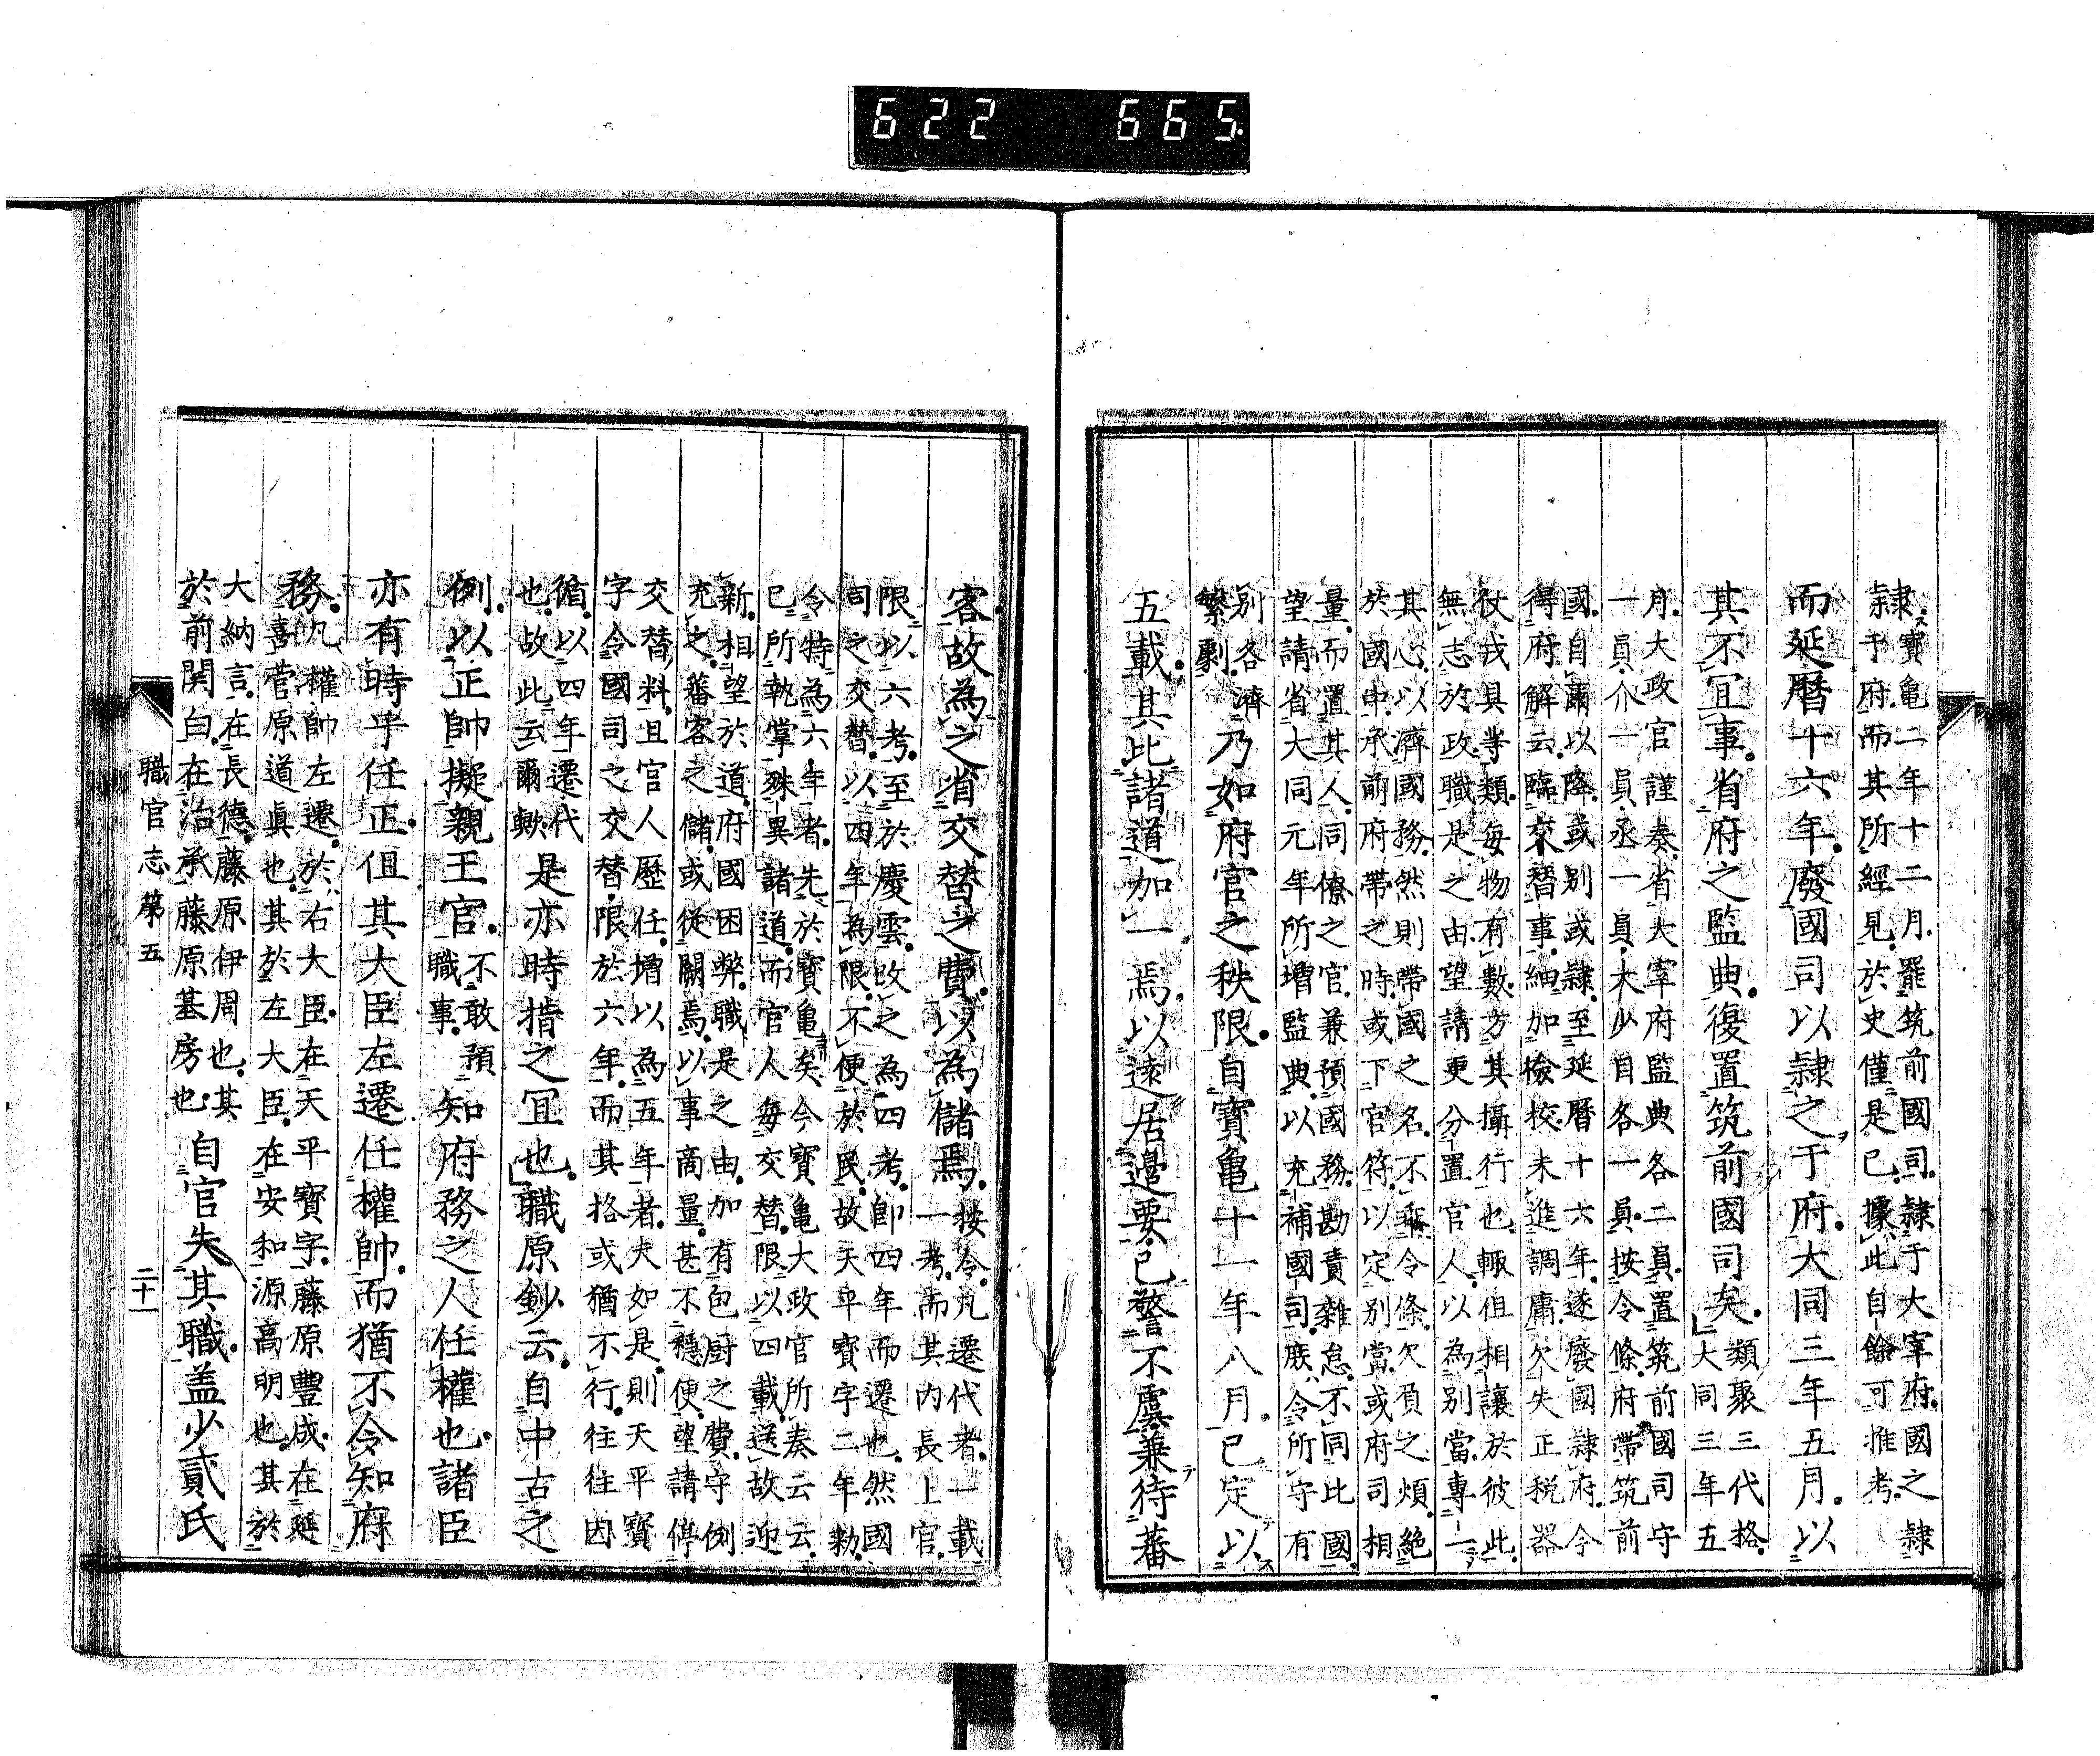 622 665
隷寳亀二年十二月罷筑前國司隷于大宰府國之隷
于府而其所經見於史僅是已據此自餘可推考
而延暦十六年廢國司以隷之于府大同三年五月以
其不冝事省府之監典復置筑前國司矣類聚三代格
大同三年五
月大政官謹奏省大宰府監典各二員置筑前國司守
一員介一員丞一員大少目各一員按令條府帶筑前
國自爾以降或別或隷至延暦十六年遂廢國隷府今
得府解云臨交替事細加撿挍未進調庸欠失正税器
仗戎具等類毎物有數方其攝行也輙伹相讓於彼此
無志於政職是之由望請更分置官人以為別當專一
其心以濟國務然則帶國之名不乖令條欠負之煩絶
於國中承前府帶之時或下官符以定別當或府司相
量而置其人同僚之官兼預國務勘責雜怠不同比國
望請省大同元年所增監典以充補國司庶令所守有
別各濟
繁劇
乃如府官之秩限自寳亀十一年八月已定以
五載其比諸道加一焉以遠居邊要已警不虞兼待蕃
客故為之省交替之費以為儲焉按令凡遷代者一載
一考而其内長上官
限以六考至於慶雲改之為四考卽四年而遷也然國
司之交替以四年為限不便於民故天平寳字二年勅
令特為六年者先於寳亀矣今寳亀大政官所奏云云
已所執掌殊異諸道而官人毎交替限以四載送故迎
新相望於道府國困弊職是之由加有包厨之費守例
充之蕃客之儲或從闕焉以事商量甚不穩便望請停
交替料且官人歷任增以為五年者夫如是則天平寳
字令國司之交替限於六年而其格或猶不行往往因
循以四年遷代
也故此云爾歟
是亦時措之冝也職原鈔云自中古之
例以正帥擬親王官不敢預
職事
知府務之人任權也諸臣
亦有時乎任正伹其大臣左遷任權帥而猶不令知府
務凡權帥左遷於右大臣在天平寳字藤原豐成在延
喜菅原道眞也其於左大臣在安和源高明也其於
大納言在長德藤原伊周也其
於前関白在治承藤原基房也
自官失其職盖少貳氏
職官志第五
二十一